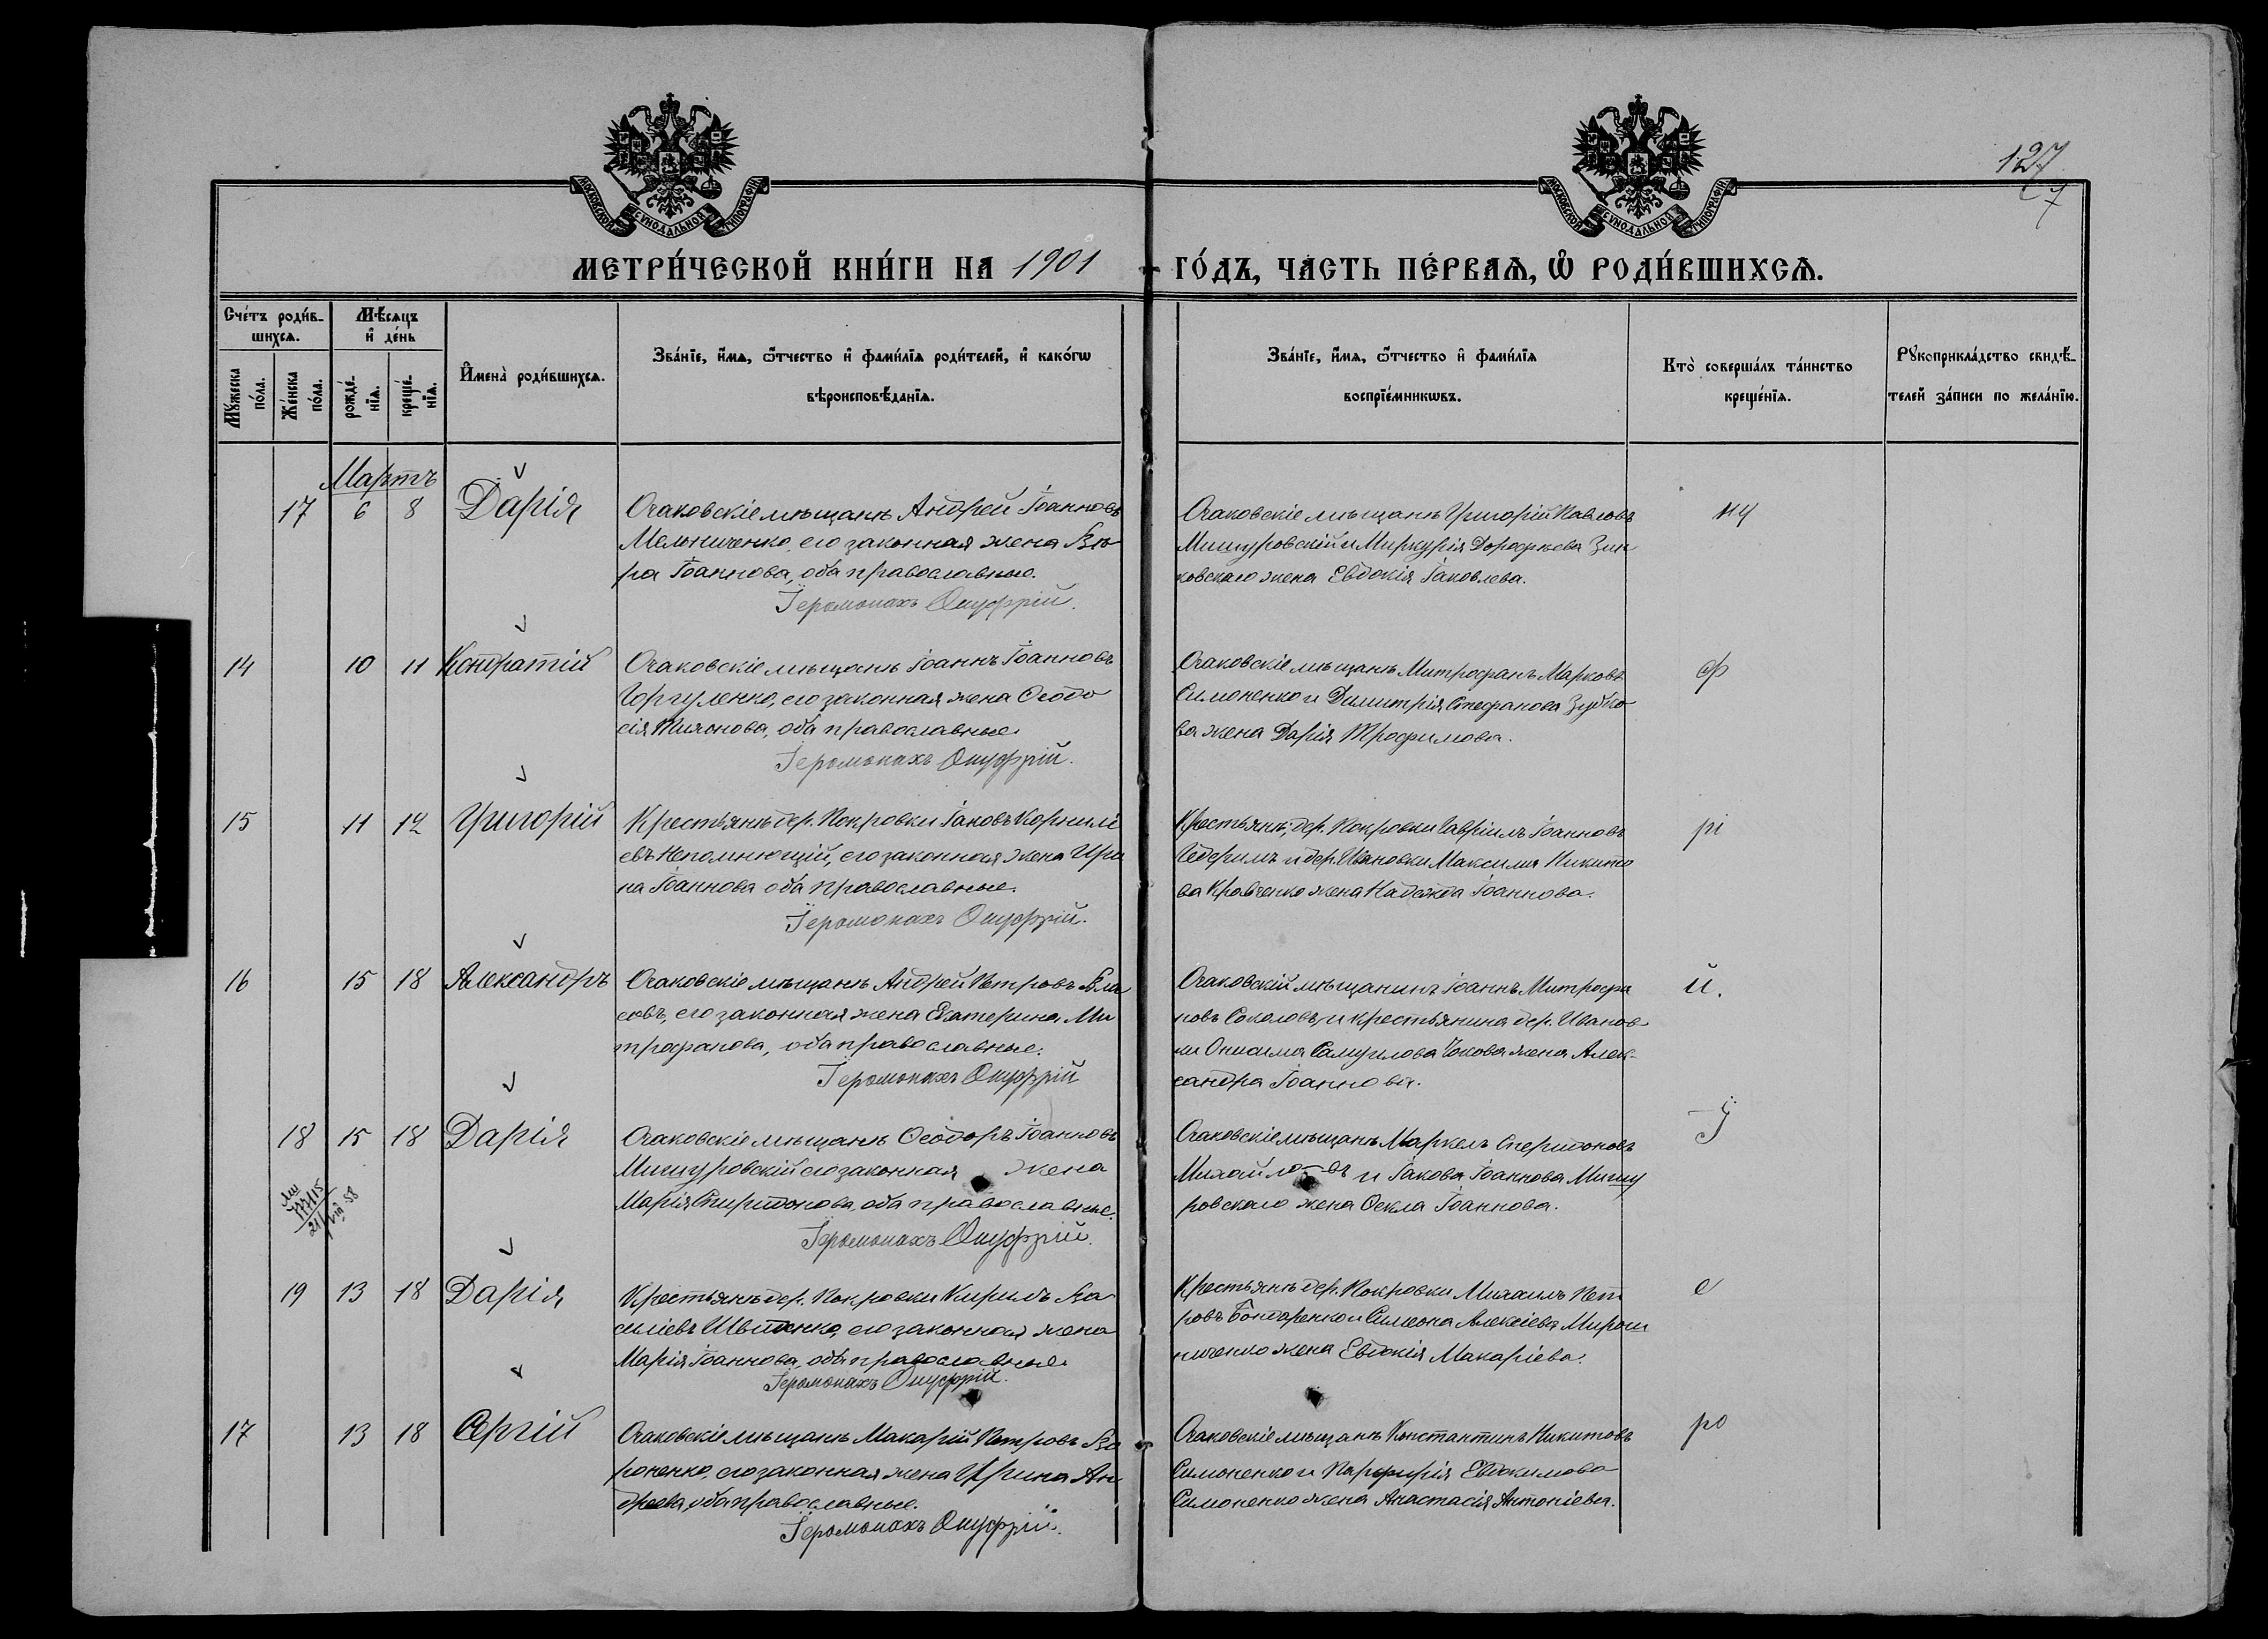 127
27
МОСКОВСКОЙ СѴНОДАЛЬНОЙ ТИПОГРАФІИ
МОСКОВСКОЙ СѴНОДАЛЬНОЙ ТИПОГРАФІИ
МЕТРИ́ЧЕСКОЙ КНИ́ГИ НА 1901 ГО́ДЪ, ЧА́СТЬ ПЕ́РВАѦ, Ѡ҆ РОДИ́ВШИХСѦ.
Сче́тъ роди́в-
шихсѧ.
Мѹ́жеска по́ла.
Же́нска по́ла.
Мѣ́сѧцъ
и҆ де́нь
рожде́-нїѧ.
креще́-нїѧ.
И҆мена̀ роди́вшихсѧ.
Зва́нїе, и҆́мѧ, ѻ҆́тчество и҆ фами́лїѧ роди́телей, и҆ како́гѡ
вѣроисповѣ́данїѧ.
Зва́нїе, и҆́мѧ, ѻ҆́тчество и҆ фами́лїѧ
воспрїе́мникѡвъ.
Кто̀ соверша́лъ та́инство
креще́нїѧ.
Рꙋкоприкла́дство свидѣ́-
телей за́писи по жела́нїю.
Мартъ
17 6 8 Дарія
Очаковскіе мѣщане Андрей Іоанновъ
Мельниченко, его законная жена Вѣ-
ра Іоаннова, оба православные.
Іеромонахъ Онуфрій.
Очаковскіе мѣщане Григорій Павловъ
Мишуровскій и Меркурія Дорофеева Зин
ковскаго жена Евдокія Іаковлева.
14 10 11 Кондратій
Очаковскіе мѣщане Іоаннъ Іоанновъ
Горгуленко, его законная жена Ѳеодо
сія Тихонова, оба православные.
Іеромонахъ Онуфрій.
Очаковскіе мѣщане Митрофанъ Марковъ
Симоненко и Димитрія Стефанова Зубко-
ва жена Дарія Трофимова.
ф
15 11 12 Григорій
Крестьяне дер. Покровки Іаковъ Корнилі
евъ Непомнющій, его законная жена Ири
на Іоаннова оба православные.
Іеромонахъ Онуфрій.
Крестьяне, дер. Покровки Гавріилъ Іоанновъ
и дер. Ивановки Максима Никито
ва Кравченко жена Надежда Іоаннова.
рі
16 15 18 Александръ
Очаковскіе мѣщане Андрей Петровъ Вла
совъ, его законная жена Екатерина Ми
трофанова, оба православные.
Іеромонахъ Онуфрій
Очаковскій мѣщанинъ Іоаннъ Митрофа
новъ Соколовъ, и крестьянина дер. Иванов-
ки Онисима Самуилова жена Алек-
сандра Іоаннова.
й.
18 15 18 Дарія
Очаковскіе мѣщане Ѳеодоръ Іоанновъ
Мишуровскій его законная жена
Марія Спиридонова, оба православные.
Іеромонахъ Онуфрій.
Очаковскіе мѣщане Маркелъ Спиридоновъ
Михайловъ и Іакова Іоаннова Мишу
ровскаго жена Ѳекла Іоаннова.
І
19 13 18 Дарія
Крестьяне дер. Покровки Кирилъ Ва
силіевъ его законная жена
Марія Іоаннова, оба православные.
Іеромонахъ Онуфрій.
Крестьяне дер. Покровки Михаилъ Пет
ровъ Бондаренко и Симеона Алексіева Мирош
ниченко жена Евдокія Макаріева.
е
17 13 18 Сергій
Очаковскіе мѣщане Макарій Петровъ Во
роненко, его законная жена Ирина Ан
дреева, оба православные.
Іеромонахъ Онуфрій.
Очаковскіе мѣщане Константинъ Никитовъ
Симоненко и Парфирія Евдокимова
Симоненко жена Анастасія Антоніева.
ро